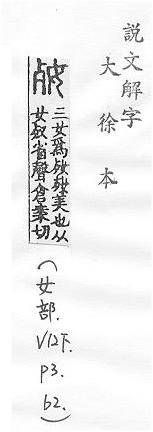 說文解字
大徐本
三女為㛑㛑美也从
女𣦼省聲倉案切
(女部.
V12下.
P3.
62.)